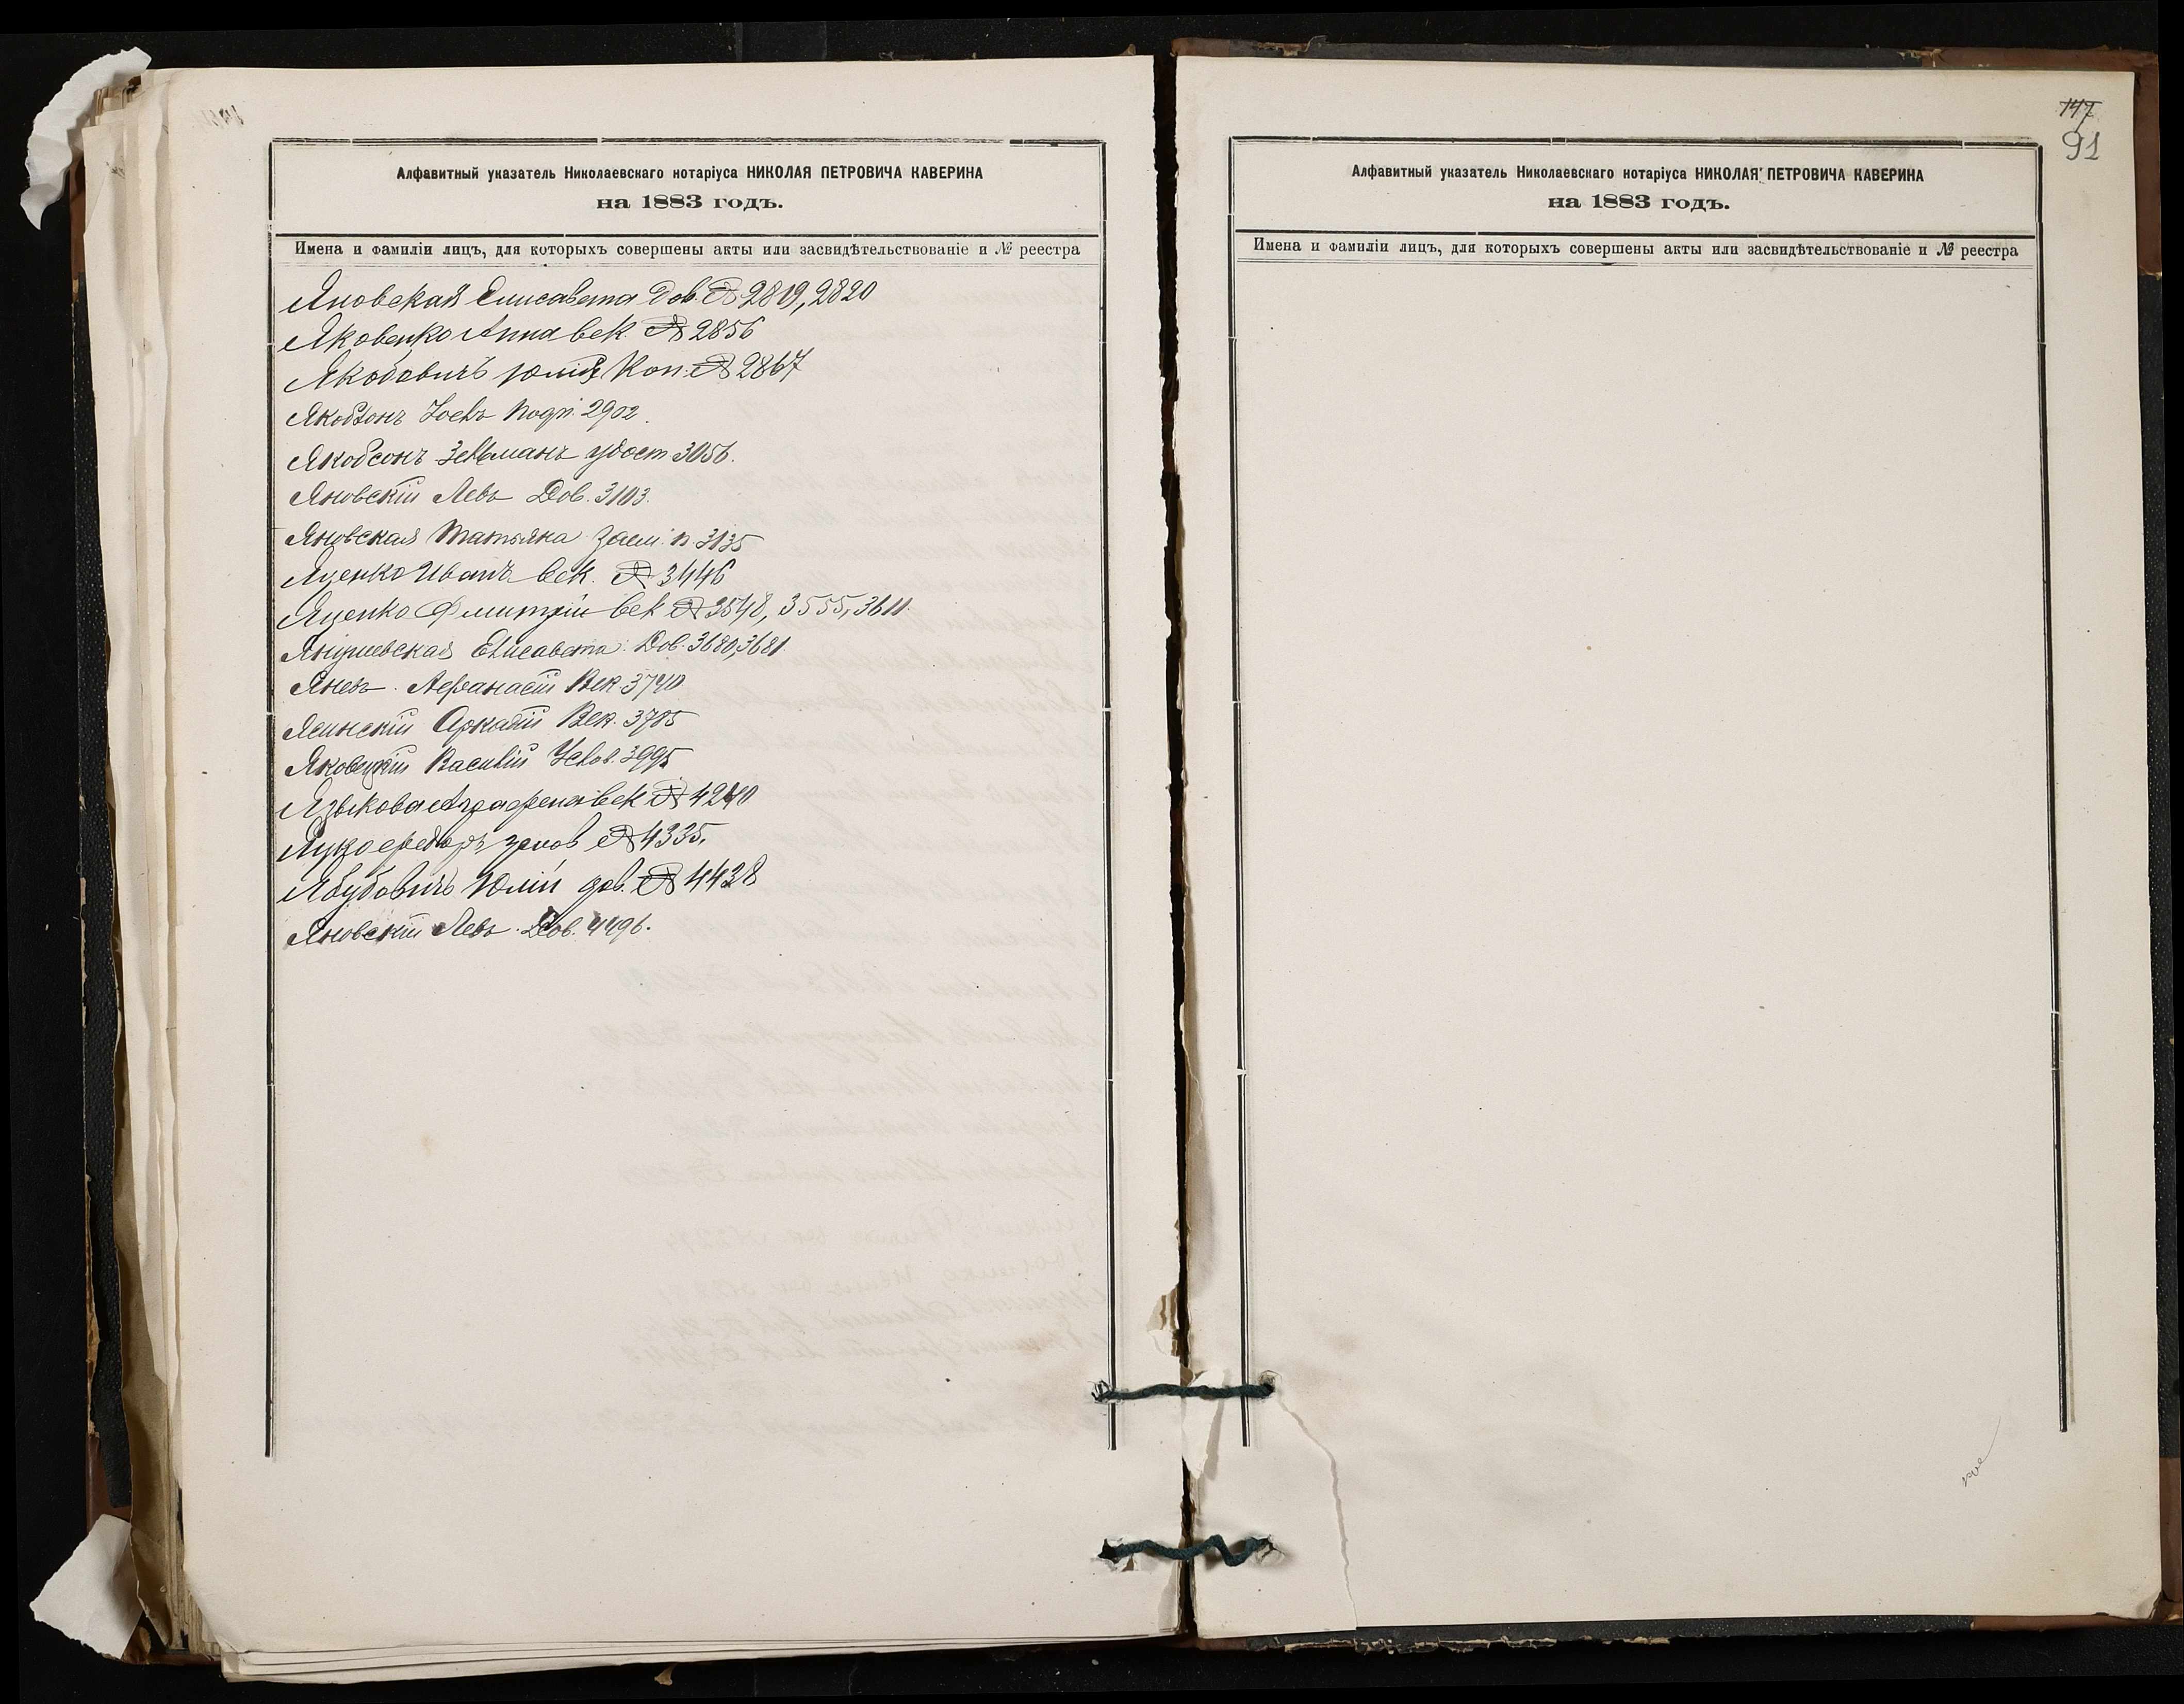 Алфавитный указатель Николаевскаго нотаріуса НИКОЛАЯ ПЕТРОВИЧА КАВЕРИНА
на 1883 годъ.
Имена и фамиліи лицъ, для которыхъ совершены акты или засвидѣтельствованіе и № реестра
Яновская Елисавета Дов. № 2819, 2820
Яковенко Анна век. № 2856
Якубовичъ Юлій Коп. № 2867
Якобзонъ Іосъ 2902.
Якобсонъ Зельманъ удост. 3056.
Яновскій Левъ Дов. 3103.
Яновская Татьяна п. 3135
Яценко Иванъ век. № 3446
Яценко Дмитрій век № 3548, 3555, 3611.
Янушевская Елисавета Дов. 3680, 3681.
Яневъ Афанасій Век. 3740
Ясинскій Аркадій Век. 3785
Яковецкій Василій Услов. 3995
Языкова Аграфена век № 4240
Федоръ № 4335.
Якубовичъ Юлій дов. № 4428
Яновскій Левъ Дов. 4496.
147
91
Алфавитный указатель Николаевскаго нотаріуса НИКОЛАЯ ПЕТРОВИЧА КАВЕРИНА
на 1883 годъ.
Имена и фамиліи лицъ, для которыхъ совершены акты или засвидѣтельствованіе и № реестра